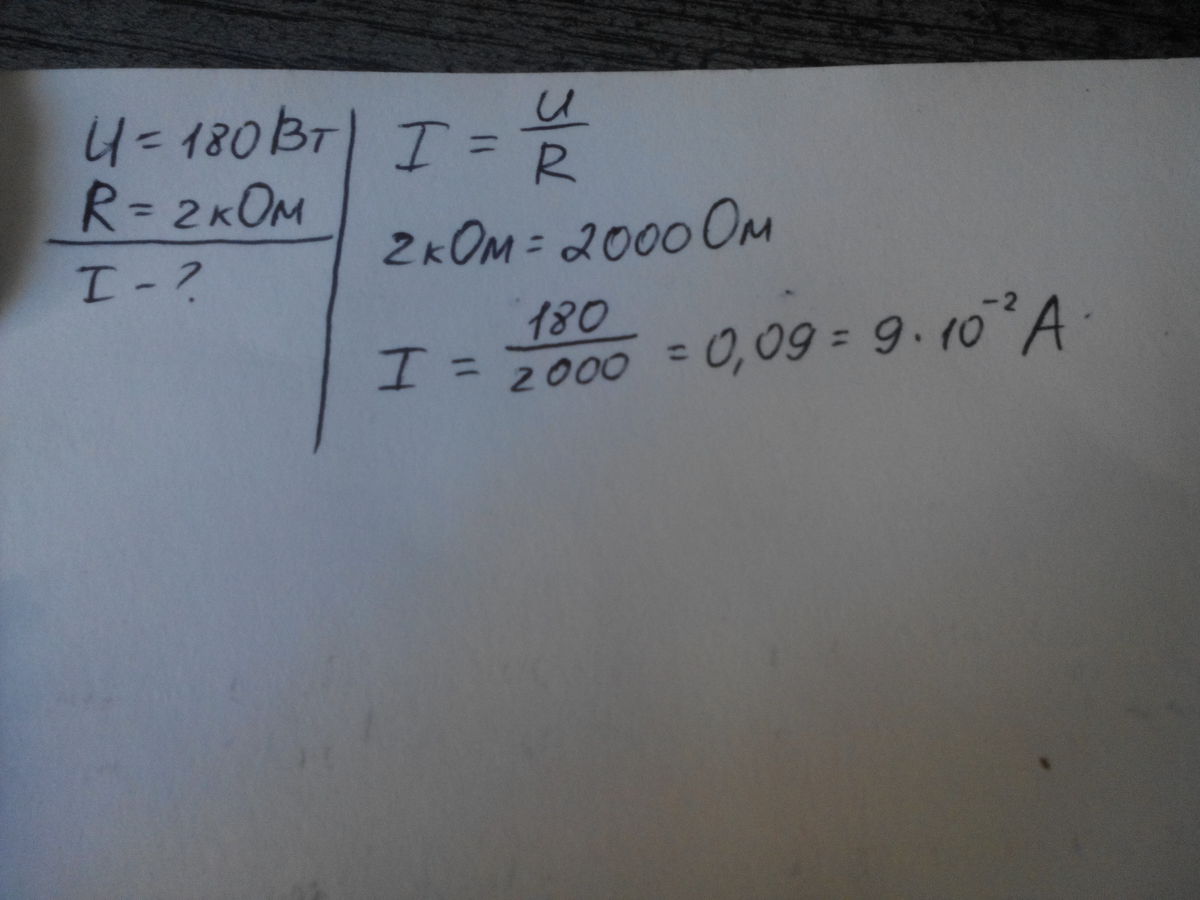 U = 180 Вт
R = 2 кОм
I - ?
I = U/R
2 кОм = 2000 Ом
I = 180/2000 = 0,09 = 9 · 10⁻² А